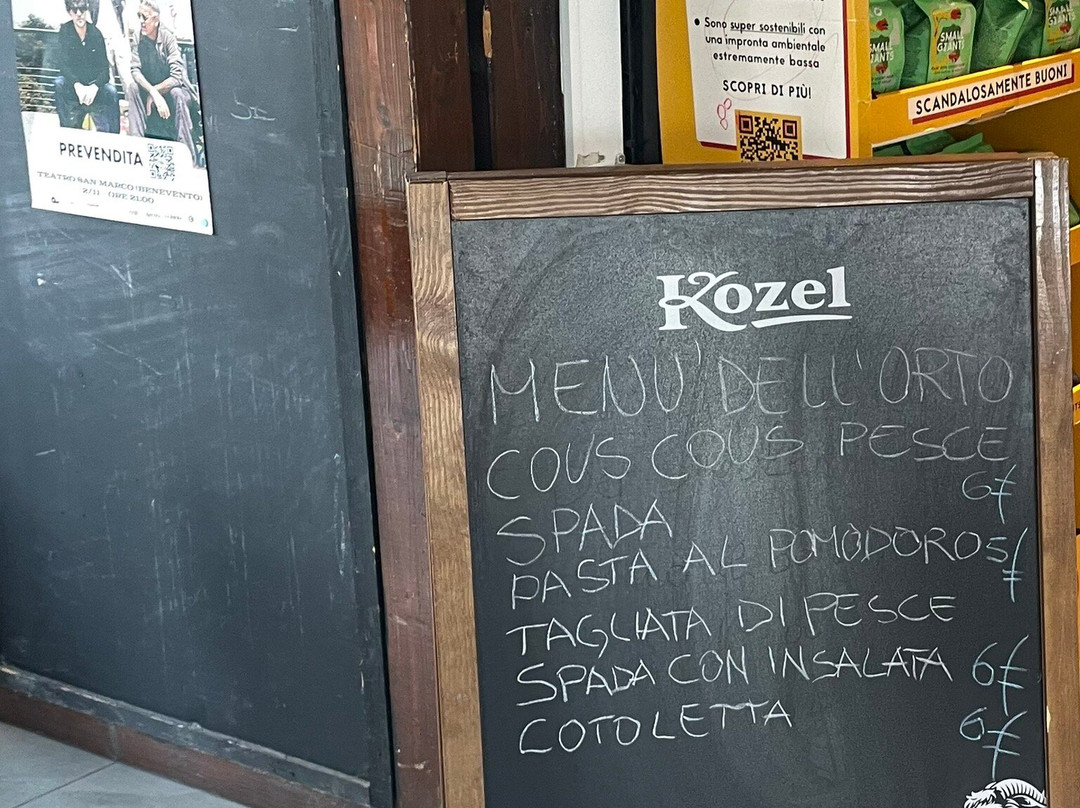 PREVENDITA
TEATRO SAN MARCO (BENEVENTO)
2/11 ORE 21:00
• Sono super sostenibili con
una impronta ambientale
estremamente bassa
SCOPRI DI PIÙ!
SMALL
GIANTS
SMALL
GIANTS
SCANDALOSAMENTE BUONI
Kozel
MENU' DELL'ORTO
COUS COUS PESCE
6€
SPADA
PASTA AL POMODORO 5€
TAGLIATA DI PESCE
SPADA CON INSALATA 6€
COTOLETTA 6€